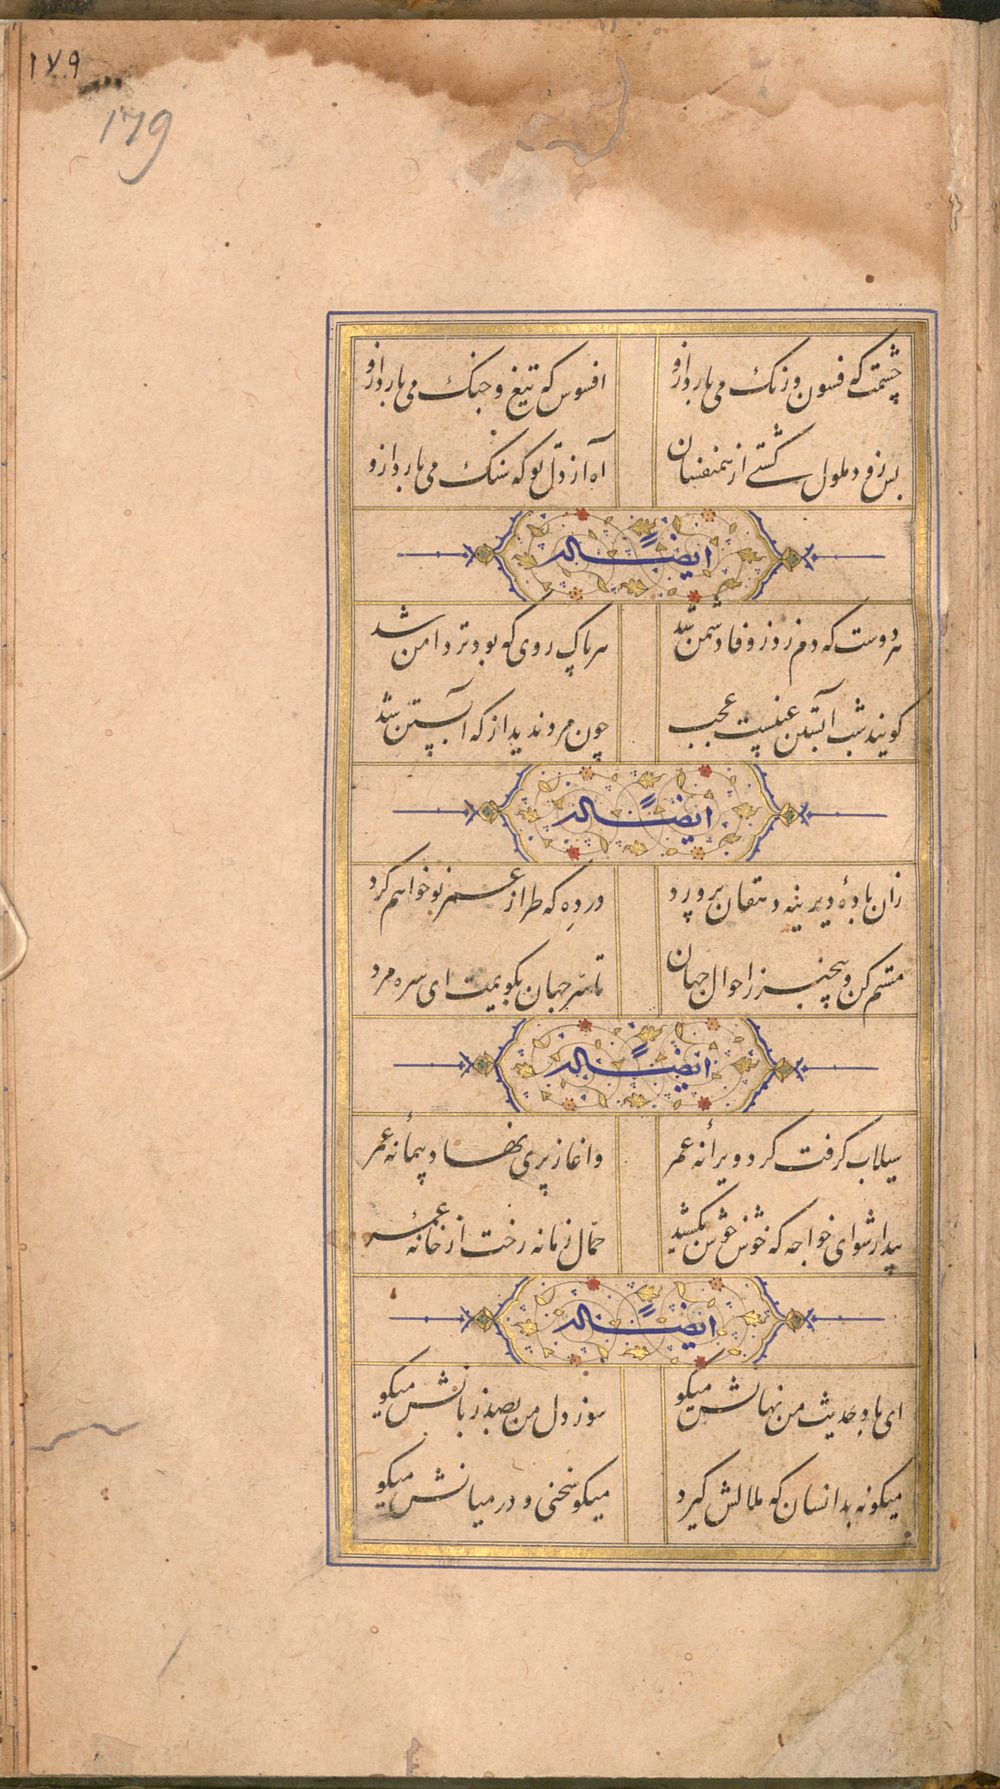 ۱۷۹
179
چشمت که فسون و رنک می بارد ازو افسوس که تیغ و جنک می بارد ازو
بس زود ملول کشتی از همنفسان آه از دل تو که سنک می بارد ازو
ایضاً له
هر دوست که دم زد ز وفا دشمن شد هر پاک روی که بود تر دامن شد
کویند شب آبستن غیبست عجب چون مرد ندید از که آبستن شد
ایضاً له
زان بادهٔ دیرینه دهقان پرورد در ده که طراز عمر نو خواهم کرد
مستم کن و بیخبر ز احوال جهان تا سر جهان بکویمت ای سره مرد
ایضاً له
سیلاب کرفت کرد ویرانه عمر و اغاز پری نهاد پیمانه عمر
بیدار شو ای خواجه که خوش خوش بکشید حمّال زمانه رخت از خانه عمر
ایضاً له
ای باد حدیث من نهانش میکو سوز دل من بصد زبانش میکو
میکو نه بدانسان که ملالش کیرد میکو سخنی و در میانش میکو